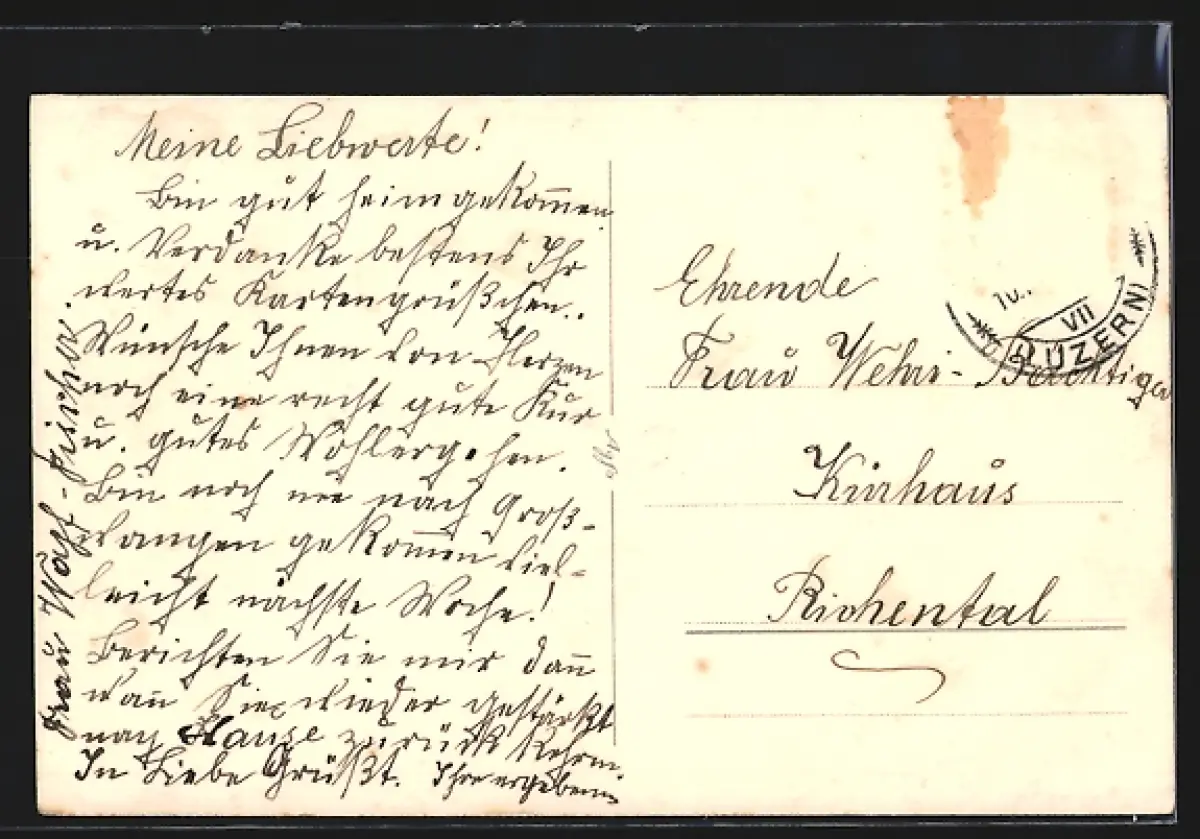 Meine Liebwerte!
Bin gut heimgekom̅en
u. Verdanke bestens Ihr
wertes Kartengrüßchen..
Wünsche Ihnen von Herzen
noch eine recht gute Kur
u. gutes Wohlergehen.
Bin noch nie nach Groß-
wangen gekom̅en viel-
leicht nächste Woche!
Berichten Sie mir dan̅
wan̅ Sie wieder gestärkt
nach Hause zurück kehren.
In Liebe Grüßt. Ihre ergebene
Frau Vogt-Fischer.
Ehrende
Frau Wehri-Bächtiger
Kurhaus
Richental
10.
VII
LUZERN 1